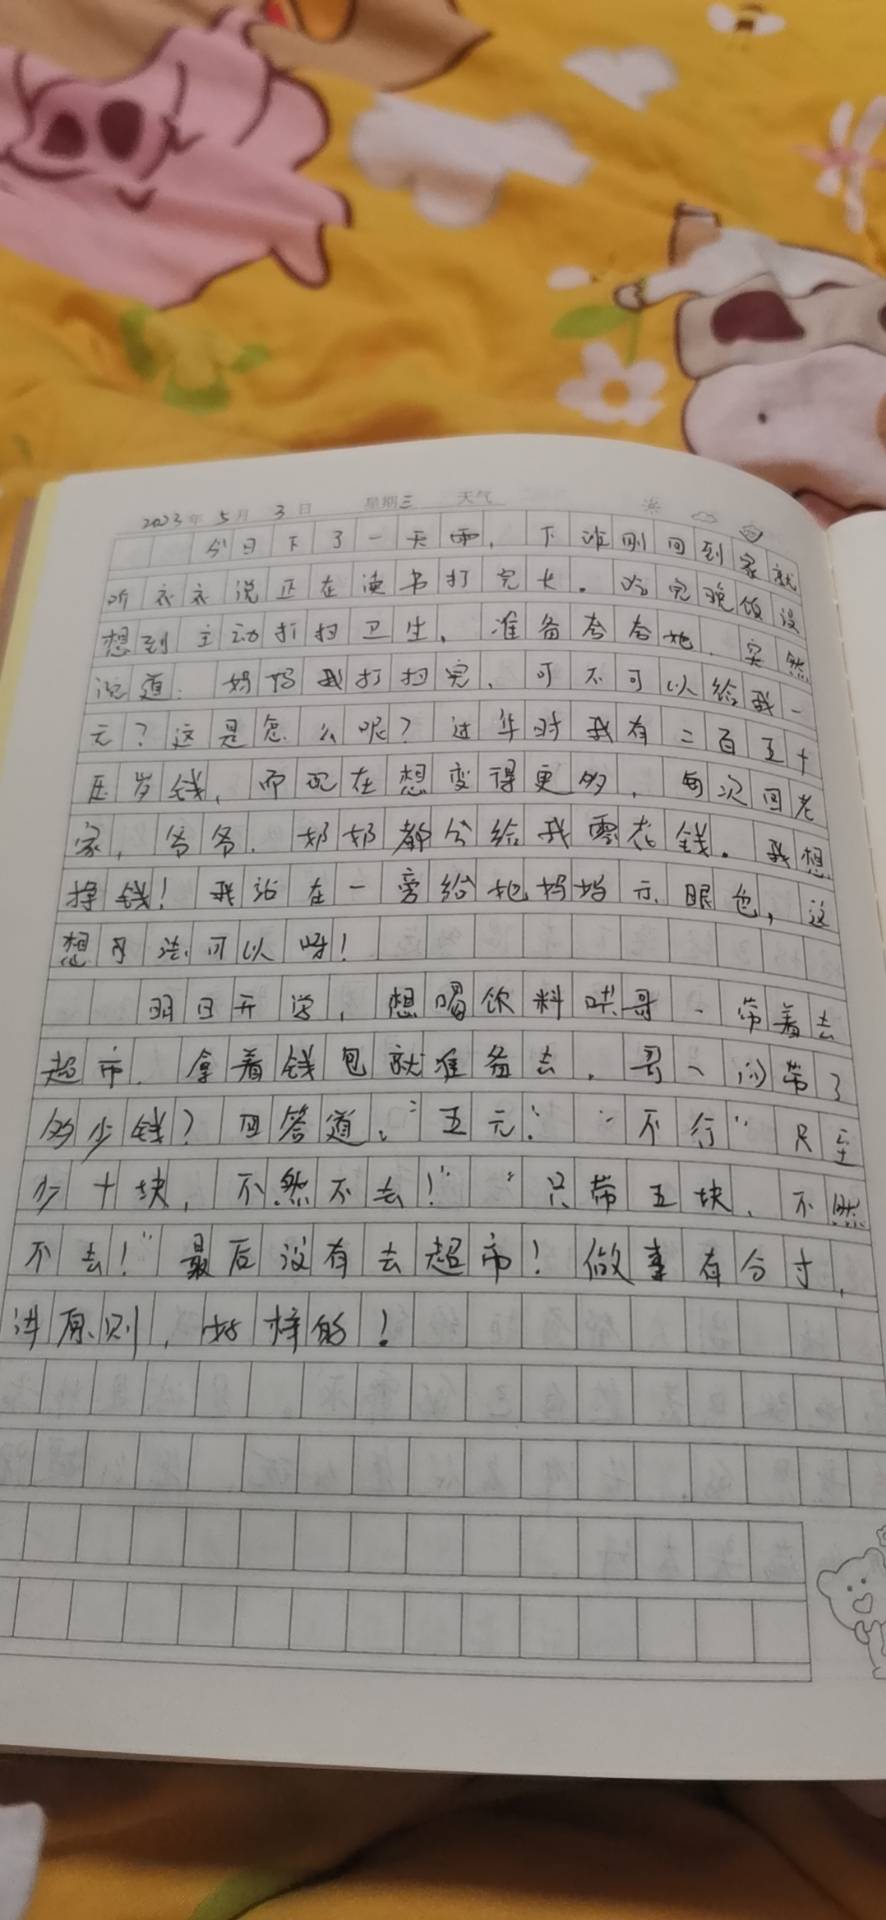 2023年 5月 3日 星期三 天气
今日下了一天雨，下班刚回到家就
听衣衣说正在读书打完卡。吃完晚饭没
想到主动打扫卫生，准备夸夸她，突然
说道：妈妈我打扫完，可不可以给我一
元？这是怎么呢？过年时我有二百五十
压岁钱，而现在想变得更多，每次回老
家，爷爷、奶奶都会给我零花钱。我想
挣钱！我站在一旁给她妈妈示眼色，这
想法可以呀！
明日开学，想喝饮料哄哥一带着去
超市，拿着钱包就准备去，哥一问带了
多少钱？回答道："五元！""不行"只至
少十块，不然不去！""只带五块，不然
不去！"最后没有去超市！做事有分寸，
讲原则，好样的！